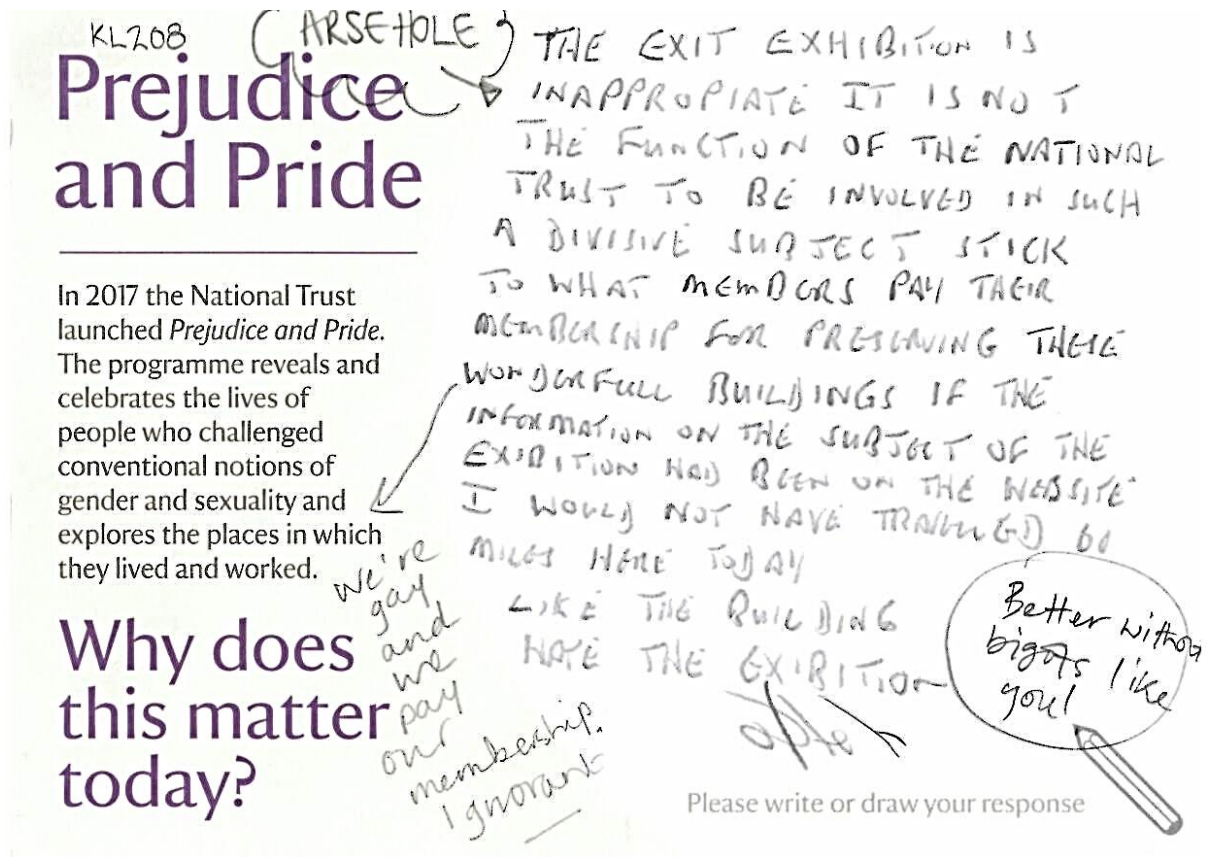 KL208
ARSEHOLE
Prejudice
and Pride
In 2017 the National Trust
launched Prejudice and Pride.
The programme reveals and
celebrates the lives of
people who challenged
conventional notions of
gender and sexuality and
explores the places in which
they lived and worked.
Why does
this matter
today?
THE EXIT EXHIBITION IS
INAPPROPIATE IT IS NOT
THE FUNCTION OF THE NATIONAL
TRUST TO BE INVOLVED IN SUCH
A DIVISIVE SUBJECT STICK
TO WHAT MEMBERS PAY THEIR
MEMBERSHIP FOR PRESERVING THESE
WONDERFULL BUILDINGS IF THE
INFORMATION ON THE SUBJECT OF THE
EXIBITION HAD BEEN ON THE WEBSITE
I WOULD NOT HAVE TRAVELLED 60
MILES HERE TODAY
LIKE THE BUILDING
HATE THE EXIBITION
We're
gay
and
we
pay
our
membership.
Ignorant
Better without
bigots like
you!
Please write or draw your response